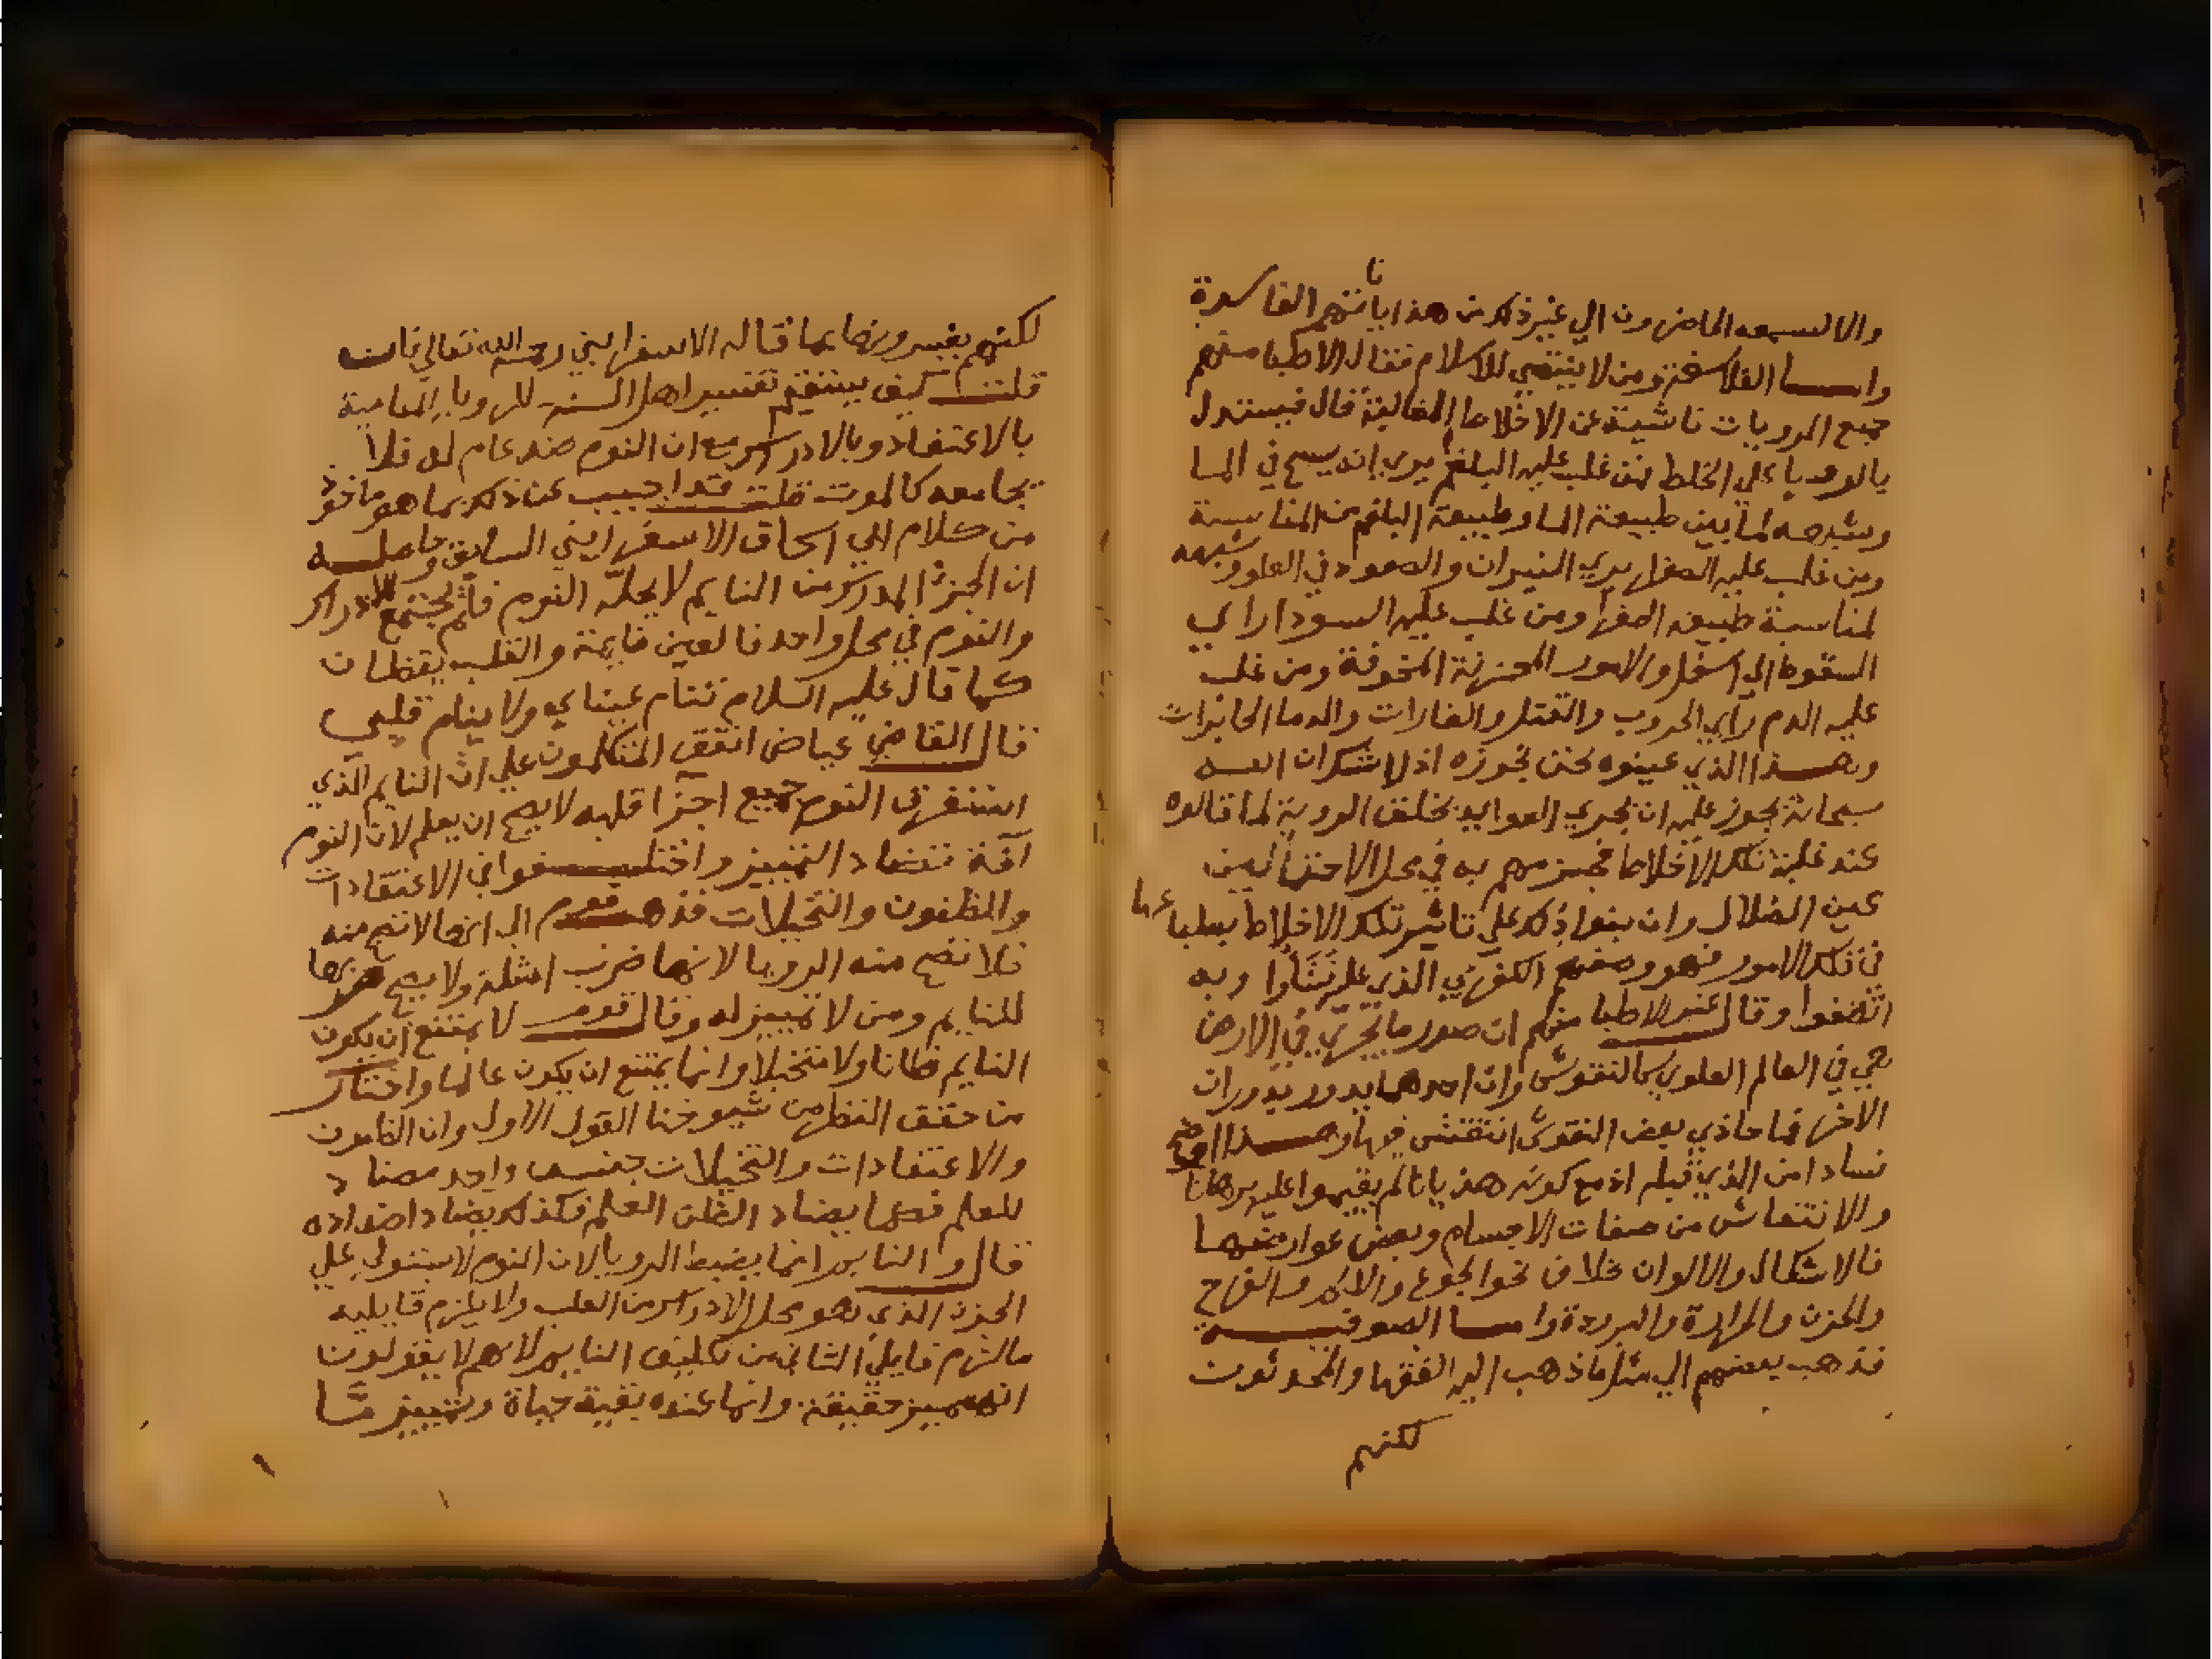 والالسعه الماضرون الي غير ذلك من هذاياناتهم الفاسدة
واما الفلاسفة ومن لا ينتمي للاسلام فقال الاطبا منهم
جميع المرويات ناشية عن الاخلاط الغالبة قال فيستدل
بالرويا علي الخلط فمن غلب عليه البلغم يري انه يسبح في الما
وشبهه لما بين طبيعة الما وطبيعة البلغم من المناسبة
ومن غلب عليه الصفرا يري النيران والصعود في العلو وشبهه
لمناسبة طبيعه الصفرا ومن غلب عليه السودا راي
السقوط الي اسفل والامور المحزنة المخوفة ومن غلب
عليه الدم راي الحروب والقتل والغارات والدما الجاريات
وهذا الذي عينوه نحن نجوزه اذ لا شك ان الله
سبحانه يجوز عليه ان يجري العوايد بخلق الروية لما قالوه
عند غلبة تلك الاخلاط فجزمهم به في محل الاحتمالين
عين الضلال وان بنوا ذلك علي تاثير تلك الاخلاط بطباعها
في تلك الامور فهو وصفهم الكفري الذي عليه نشاوا وبه
اتصفوا وقال غير الاطبا منهم ان صور ما يجري في الارض
هي في العالم العلوي كالنقوش وان احدهما يدور بدوران
الاخر فما حاذي بعض النقوش انتقش فيها وهذا اوضح
فسادا من الذي قبله اذ مع كونه هذيانا لم يقيموا عليه برهانا
والانتقاش من صفات الاجسام وبعض عوارضها
فالاشكال والالوان خلاف نحو الجوع والالم والفرح
والحزن والحرارة والبرودة واما الصوفية
فذهب بعضهم الي مثل ما ذهب اليه الفقها والمحدثون
لكنهم
لكنهم يفسرونها بما قاله الاسفرايني رحمه الله تعالي فان
قلت كيف يستقيم تفسير اهل السنة للرويا المنامية
بالاعتقاد وبالادراك مع ان النوم ضد عام له فلا
يجامعه كالموت قلت قد اجيب عن ذلك بما هو ماخوذ
من كلام ابي اسحاق الاسفرايني السابق وحاصله
ان الجزء المدرك من النايم لا يحله النوم فلم يجتمع الادراك
والنوم في محل واحد فالعين نايمة والقلب يقظان
كما قال عليه السلام تنام عيناي ولا ينام قلبي
قال القاضي عياض اتفق المتكلمون علي ان النايم الذي
استغرق النوم جميع اجزا قلبه لا يصح ان يعلم لان النوم
آفة تضاد التمييز واختلفوا في الاعتقادات
والظنون والتخيلات فذهب قوم الي انها لا تصح منه
فلا تصح منه الرويا لانها ضرب امثلة ولا يصح ضربها
للنايم ومن لا تمييز له وقال قوم لا يمتنع ان يكون
النايم ظانا ولا متخيلا وانما يمتنع ان يكون عالما واختار
من حقق النظر من شيوخنا القول الاول وان الظنون
والاعتقادات والتخيلات جنس واحد مضاد
للعلم فكما يضاد الظن العلم فكذلك يضاد اضداده
قالوا والنايم انما يضبط الرويا لان النوم لا يستولي علي
الجزء الذي هو محل الادراك من القلب ولا يلزم قايليه
ما لزم قايلي الثاني من تكليف النايم لانهم لا يقولون
انه مميز حقيقة وانما عنده بقية حياة وتمييز ما